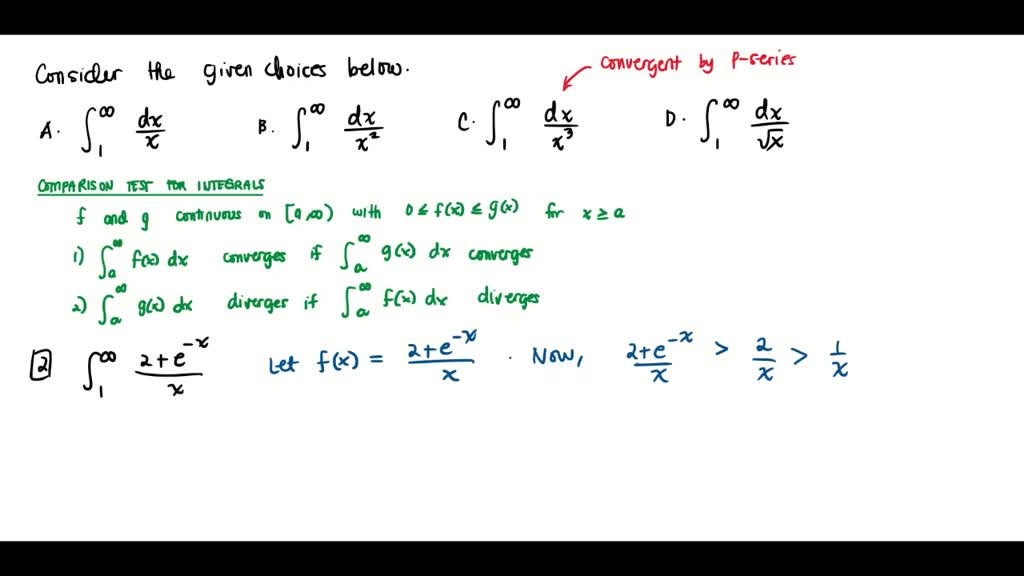 Consider the given choices below.
convergent by P-series
A. ∫₁^∞ dx/x B. ∫₁^∞ dx/x² C. ∫₁^∞ dx/x³ D. ∫₁^∞ dx/√x
COMPARISON TEST FOR INTEGRALS
f and g continuous on [a,∞) with 0 ≤ f(x) ≤ g(x) for x ≥ a
1) ∫ₐ^∞ f(x) dx converges if ∫ₐ^∞ g(x) dx converges
2) ∫ₐ^∞ g(x) dx diverges if ∫ₐ^∞ f(x) dx diverges
2 ∫₁^∞ (2+e^(-x))/x Let f(x) = (2+e^(-x))/x . Now, (2+e^(-x))/x > 2/x > 1/x